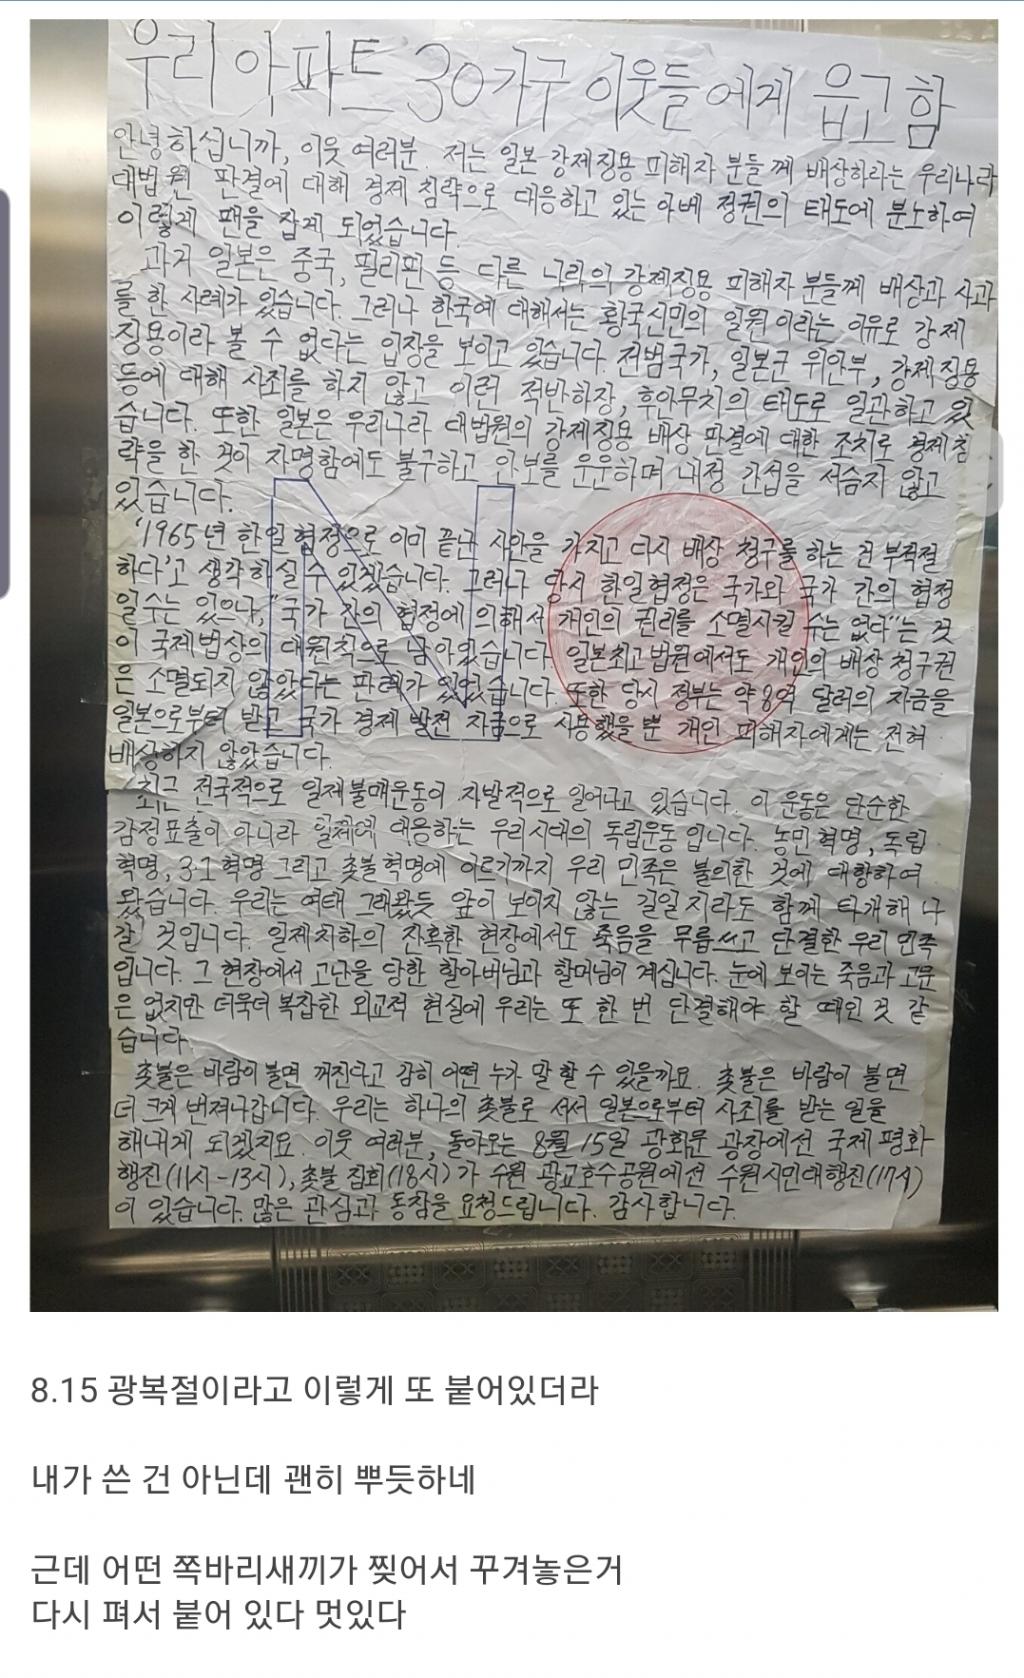 우리 아파트 30가구 이웃들에게 읍고함
안녕하십니까, 이웃 여러분. 저는 일본 강제징용 피해자 분들께 배상하라는 우리나라
대법원 판결에 대해 경제 침략으로 대응하고 있는 아베 정권의 태도에 분노하여
이렇게 펜을 잡게 되었습니다.
과거 일본은 중국, 필리핀 등 다른 나라의 강제징용 피해자 분들께 배상과 사과
를 한 사례가 있습니다. 그러나 한국에 대해서는 황국신민의 일원이라는 이유로 강제
징용이라 볼 수 없다는 입장을 보이고 있습니다. 전범국가, 일본군 위안부, 강제징용
등에 대해 사죄를 하지 않고 이런 적반하장, 후안무치의 태도로 일관하고 있
습니다. 또한 일본은 우리나라 대법원의 강제징용 배상 판결에 대한 조치로 경제침
략을 한 것이 자명함에도 불구하고 안보를 운운하며 내정 간섭을 서슴지 않고
있습니다.
'1965년 한일협정으로 이미 끝난 사안을 가지고 다시 배상 청구를 하는 건 부적절
하다'고 생각하실 수 있겠습니다. 그러나 당시 한일협정은 국가와 국가 간의 협정
일수는 있으나, "국가 간의 협정에 의해서 개인의 권리를 소멸시킬 수는 없다"는 것
이 국제법상의 대원칙으로 남아있습니다. 일본최고법원에서도 개인의 배상 청구권
은 소멸되지 않았다는 판례가 있었습니다. 또한 당시 정부는 약 8억 달러의 자금을
일본으로부터 받고 국가 경제 발전 자금으로 사용했을 뿐 개인 피해자에게는 전혀
배상하지 않았습니다.
최근 전국적으로 일제불매운동이 자발적으로 일어나고 있습니다. 이 운동은 단순한
감정표출이 아니라 일제에 대응하는 우리시대의 독립운동 입니다. 농민혁명, 독립
혁명, 3.1혁명 그리고 촛불혁명에 이르기까지 우리 민족은 불의한 것에 대항하여
왔습니다. 우리는 여태 그래왔듯 앞이 보이지 않는 길일지라도 함께 타개해 나
갈 것입니다. 일제치하의 잔혹한 현장에서도 죽음을 무릅쓰고 단결한 우리 민족
입니다. 그 현장에서 고난을 당한 할아버님과 할머님이 계십니다. 눈에 보이는 죽음과 고문
은 없지만 더욱더 복잡한 외교적 현실에 우리는 또 한 번 단결해야 할 때인 것 같
습니다.
촛불은 바람이 불면 꺼진다고 감히 어떤 누가 말 할 수 있을까요. 촛불은 바람이 불면
더 크게 번져나갑니다. 우리는 하나의 촛불로 서서 일본으로부터 사죄를 받는 일을
해내게 되겠지요. 이웃 여러분, 돌아오는 8월 15일 광화문 광장에선 국제 평화
행진(11시-13시), 촛불 집회(18시)가 수원 광교호수공원에선 수원시민대행진(17시)
이 있습니다. 많은 관심과 동참을 요청드립니다. 감사합니다.
NO
8.15 광복절이라고 이렇게 또 붙어있더라
내가 쓴 건 아닌데 괜히 뿌듯하네
근데 어떤 쪽바리새끼가 찢어서 꾸겨놓은거
다시 펴서 붙어 있다 멋있다